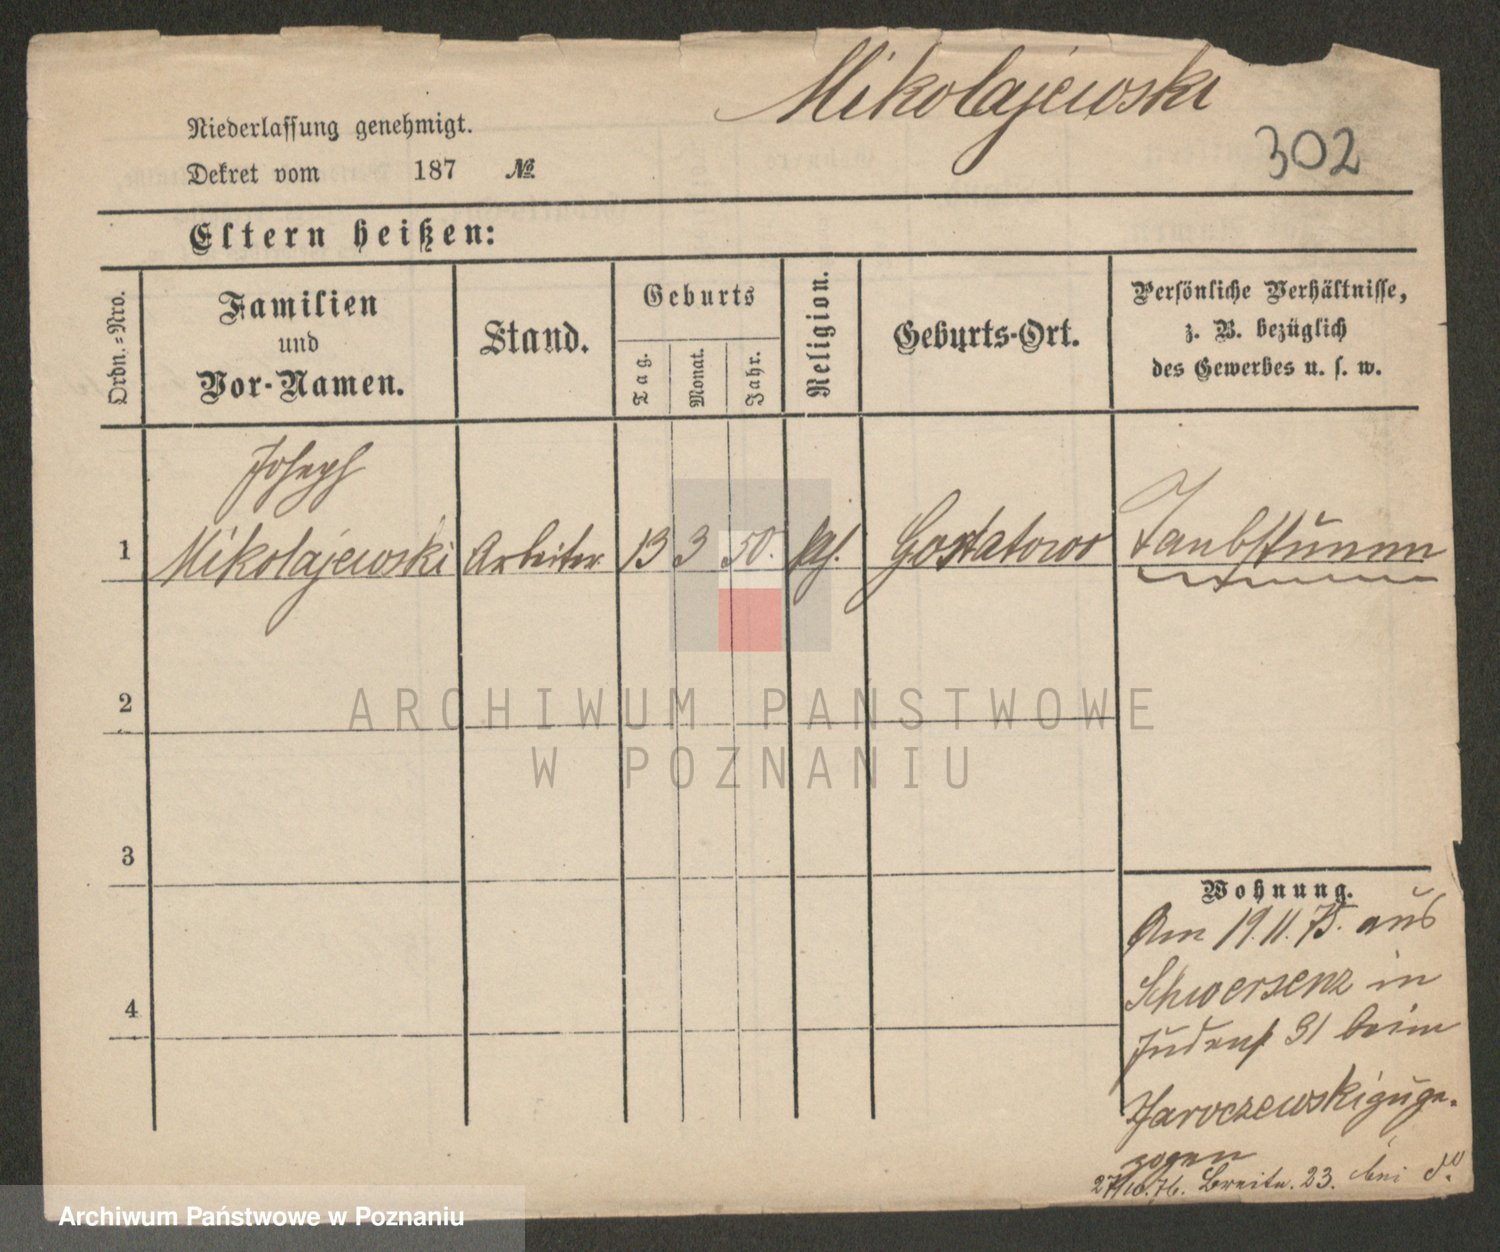 Mikolajewski
302
Niederlassung genehmigt.
Dekret vom 187 №
Eltern heißen:
Ordn.-Nro.
Familien
und
Vor-Namen.
Stand.
Geburts
Tag.
Monat.
Jahr.
Religion.
Geburts-Ort.
Persönliche Verhältnisse,
z. B. bezüglich
des Gewerbes u. s. w.
Joseph
1 Mikolajewski Arbeiter 13 3 50. kath. Gostatowo Taubstumm
2
3
4
Wohnung.
Am 19.11.75. aus
Schwersenz in
Judenstr 31 beim
Jaroczewski zuge-
zogen
27/10.76. Breite. 23. bei do
ARCHIWUM PAŃSTWOWE
W POZNANIU
Archiwum Państwowe w Poznaniu